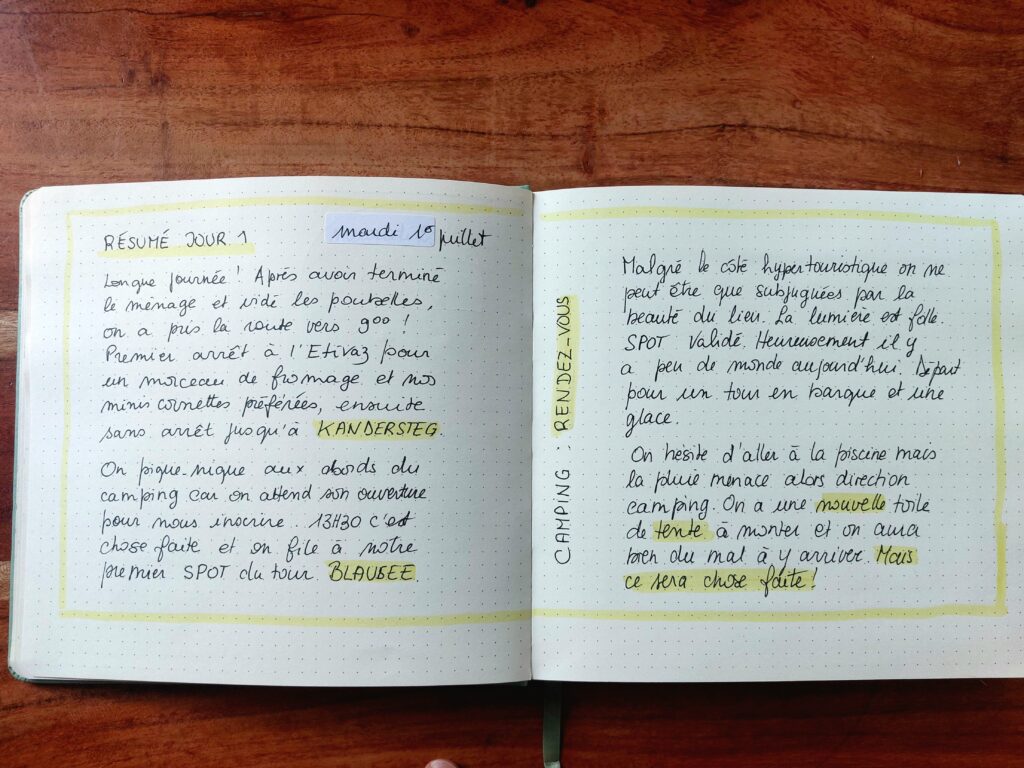 RÉSUMÉ JOUR 1
mardi juillet
Longue journée ! Après avoir terminé
le ménage et vidé les poubelles,
on a pris la route vers 9oo !
Premier arrêt à l'Etivaz pour
un morceau de fromage et nos
minis cornettes préférées, ensuite
sans arrêt jusqu'à KANDERSTEG.
On pique-nique aux abords du
camping car on attend son ouverture
pour nous inscrire.. 13H30 c'est
chose faite et on file à notre
premier SPOT du tour BLAUSEE.
CAMPING : RENDEZ-VOUS
Malgré le côté hypertouristique on ne
peut être que subjuguées par la
beauté du lieu. La lumière est folle.
SPOT validé. Heureusement il y
a peu de monde aujourd'hui. Départ
pour un tour en barque et une
glace.
On hésite d'aller à la piscine mais
la pluie menace alors direction
camping. On a une nouvelle toile
de tente à monter et on aura
bien du mal à y arriver. Mais
ce sera chose faite !